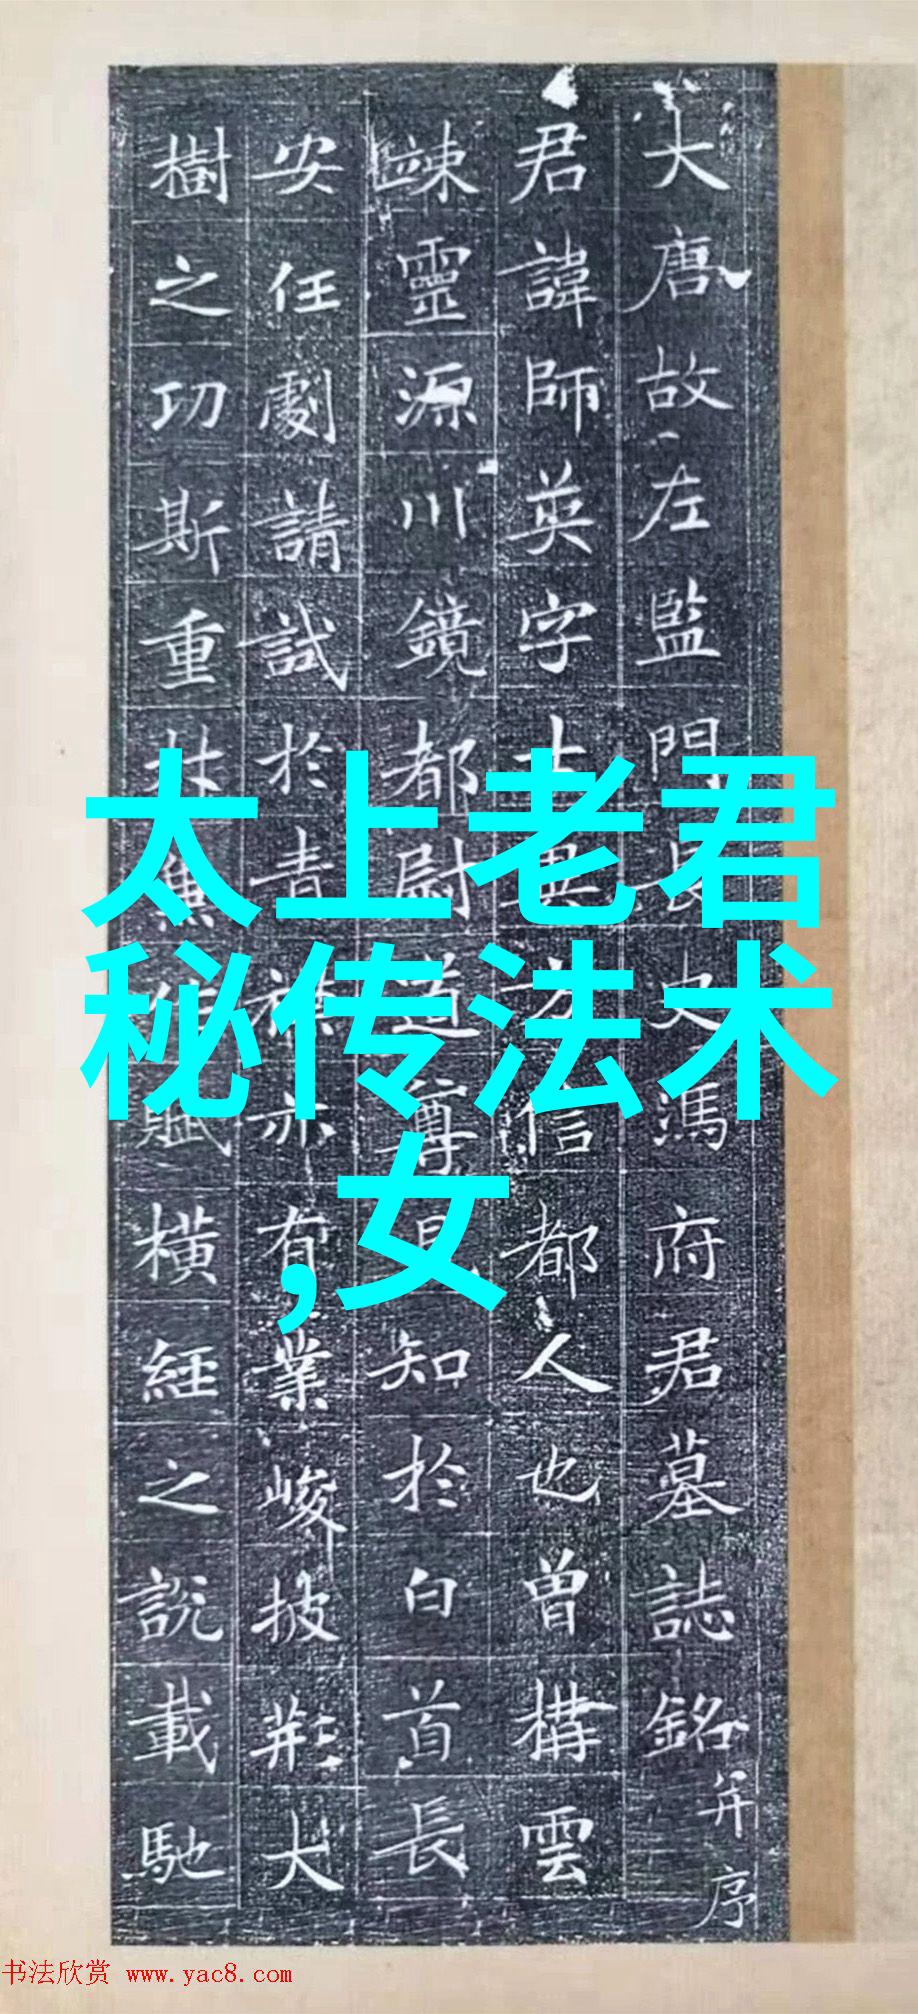 大唐故左監門長史馮府君墓誌銘并序
君諱師英字士興方信都人也曾構雲
竦靈源川鏡都尉道尊見知於白首長
安任劇請試於青襟亦有業峻披荊大
樹之功斯重材蕉作賦橫經之說載馳
太上老君
秘传法术
,女
书法欣赏 www.yac8.com